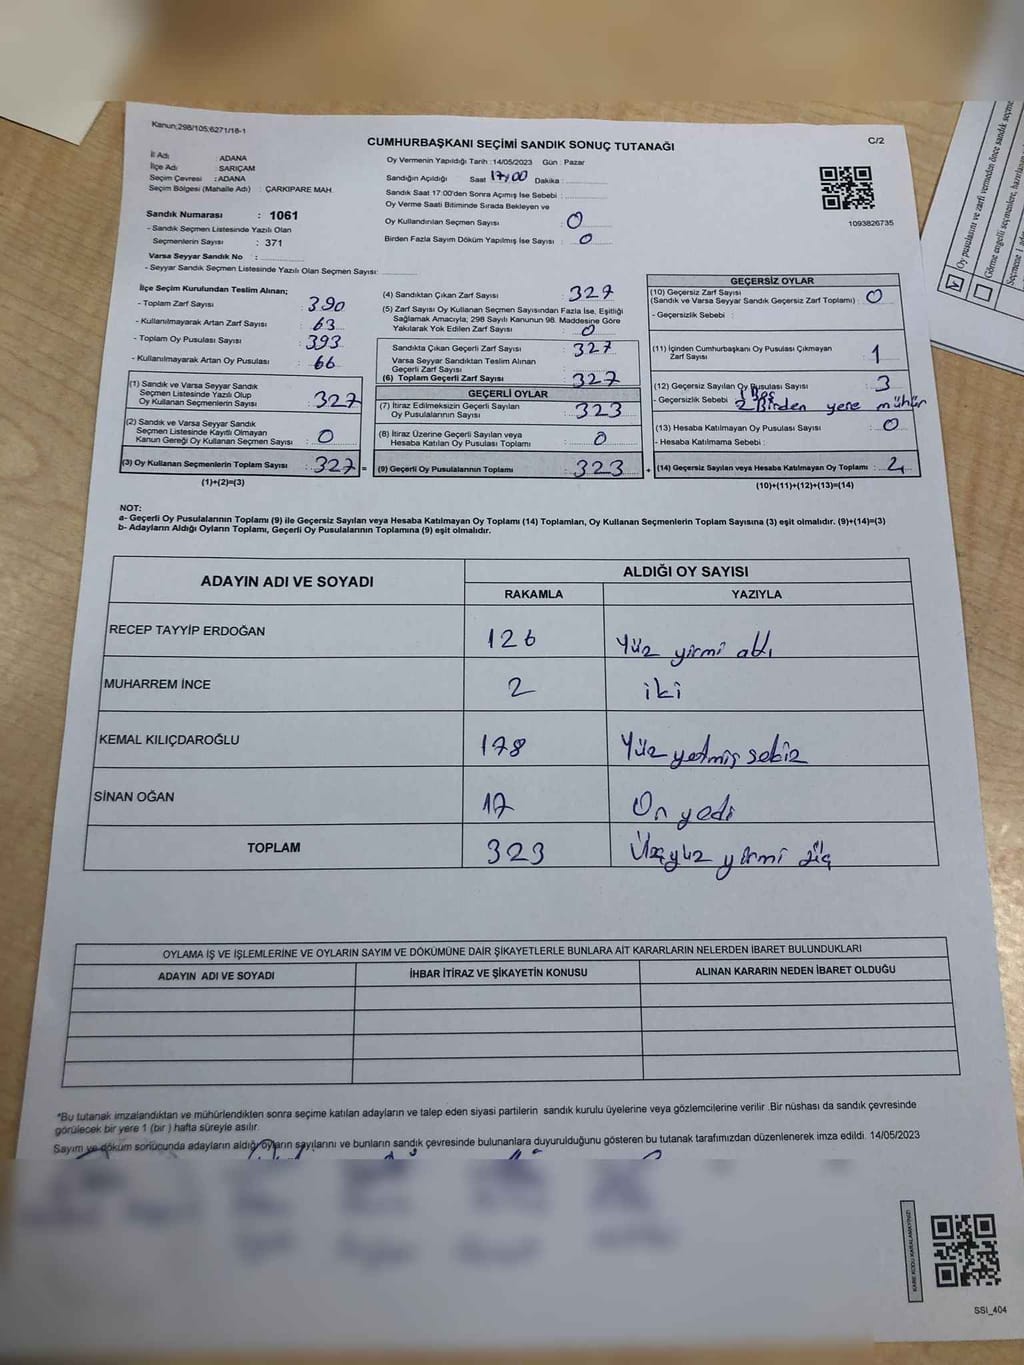 Kanun;298/105;6271/16-1
CUMHURBAŞKANI SEÇİMİ SANDIK SONUÇ TUTANAĞI
C/2
İl Adı ADANA
İlçe Adı SARIÇAM
Seçim Çevresi : ADANA
Seçim Bölgesi (Mahalle Adı) : ÇARKIPARE MAH.
Sandık Numarası : 1061
- Sandık Seçmen Listesinde Yazılı Olan
Seçmenlerin Sayısı : 371
Varsa Seyyar Sandık No :
- Seyyar Sandık Seçmen Listesinde Yazılı Olan Seçmen Sayısı:
Oy Vermenin Yapıldığı Tarih :14/05/2023 Gün : Pazar
Sandığın Açıldığı Saat 17:00 Dakika :
Sandık Saat 17:00'den Sonra Açımış İse Sebebi :
Oy Verme Saati Bitiminde Sırada Bekleyen ve
Oy Kullandırılan Seçmen Sayısı : 0
Birden Fazla Sayım Döküm Yapılmış İse Sayısı : 0
1093826735
İlçe Seçim Kurulundan Teslim Alınan;
- Toplam Zarf Sayısı : 390
- Kullanılmayarak Artan Zarf Sayısı : 63
- Toplam Oy Pusulası Sayısı : 393
- Kullanılmayarak Artan Oy Pusulası : 66
(1) Sandık ve Varsa Seyyar Sandık
Seçmen Listesinde Yazılı Olup
Oy Kullanan Seçmenlerin Sayısı : 327
(2) Sandık ve Varsa Seyyar Sandık
Seçmen Listesinde Kayıtlı Olmayan
Kanun Gereği Oy Kullanan Seçmen Sayısı : 0
(3) Oy Kullanan Seçmenlerin Toplam Sayısı : 327 =
(1)+(2)=(3)
(4) Sandıktan Çıkan Zarf Sayısı : 327
(5) Zarf Sayısı Oy Kullanan Seçmen Sayısından Fazla İse, Eşitliği
Sağlamak Amacıyla, 298 Sayılı Kanunun 98. Maddesine Göre
Yakılarak Yok Edilen Zarf Sayısı : 0
Sandıkta Çıkan Geçerli Zarf Sayısı : 327
Varsa Seyyar Sandıktan Teslim Alınan
Geçerli Zarf Sayısı
(6) Toplam Geçerli Zarf Sayısı : 327
GEÇERLİ OYLAR
(7) İtiraz Edilmeksizin Geçerli Sayılan
Oy Pusulasının Sayısı : 323
(8) İtiraz Üzerine Geçerli Sayılan veya
Hesaba Katılan Oy Pusulası Toplamı : 0
(9) Geçerli Oy Pusulalarının Toplamı : 323 +
GEÇERSİZ OYLAR
(10) Geçersiz Zarf Sayısı
(Sandık ve Varsa Seyyar Sandık Geçersiz Zarf Toplamı) : 0
- Geçersizlik Sebebi :
(11) İçinden Cumhurbaşkanı Oy Pusulası Çıkmayan
Zarf Sayısı 1
(12) Geçersiz Sayılan Oy Pusulası Sayısı : 3
- Geçersizlik Sebebi 1 Boş
2 Birden yere mühür
(13) Hesaba Katılmayan Oy Pusulası Sayısı : 0
- Hesaba Katılmama Sebebi :
(14) Geçersiz Sayılan veya Hesaba Katılmayan Oy Toplamı : 4
(10)+(11)+(12)+(13)=(14)
NOT:
a- Geçerli Oy Pusulalarının Toplamı (9) ile Geçersiz Sayılan veya Hesaba Katılmayan Oy Toplamı (14) Toplamları, Oy Kullanan Seçmenlerin Toplam Sayısına (3) eşit olmalıdır. (9)+(14)=(3)
b- Adayların Aldığı Oyların Toplamı, Geçerli Oy Pusulalarının Toplamına (9) eşit olmalıdır.
ADAYIN ADI VE SOYADI ALDIĞI OY SAYISI
RAKAMLA YAZIYLA
RECEP TAYYİP ERDOĞAN 126 Yüz yirmi altı
MUHARREM İNCE 2 iki
KEMAL KILIÇDAROĞLU 178 Yüz yetmiş sekiz
SİNAN OĞAN 17 On yedi
TOPLAM 323 Üçyüz yirmi üç
OYLAMA İŞ VE İŞLEMLERİNE VE OYLARIN SAYIM VE DÖKÜMÜNE DAİR ŞİKAYETLERLE BUNLARA AİT KARARLARIN NELERDEN İBARET BULUNDUKLARI
ADAYIN ADI VE SOYADI İHBAR İTİRAZ VE ŞİKAYETİN KONUSU ALINAN KARARIN NEDEN İBARET OLDUĞU
*Bu tutanak imzalandıktan ve mühürlendikten sonra seçime katılan adayların ve talep eden siyasi partilerin sandık kurulu üyelerine veya gözlemcilerine verilir .Bir nüshası da sandık çevresinde
görülecek bir yere 1 (bir ) hafta süreyle asılır.
Sayım ve döküm sonucunda adayların aldığı oyların sayılarını ve bunların sandık çevresinde bulunanlara duyurulduğunu gösteren bu tutanak tarafımızdan düzenlenerek imza edildi. 14/05/2023
KARE KODU KARALAMAYINIZ!
SSİ_404
Oy pusulasını ve zarfı vermeden önce sandık seçme
Görme engelli seçmenlere, hazırlanan